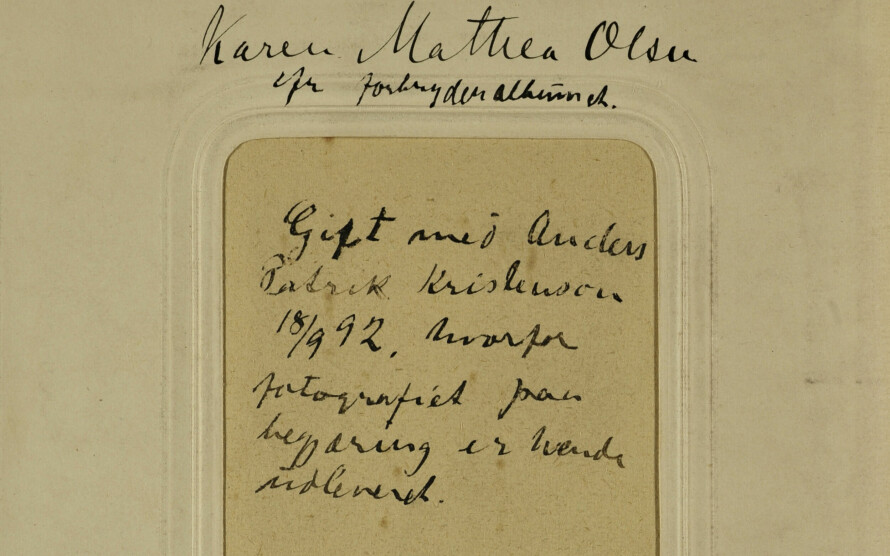 Karen Mathea Olsen
cfr forbryderalbumet.
Gift med Anders
Patrik Kristenson
18/9 92, hvorfor
fotografiet paa
begjæring er hende
udleveret.